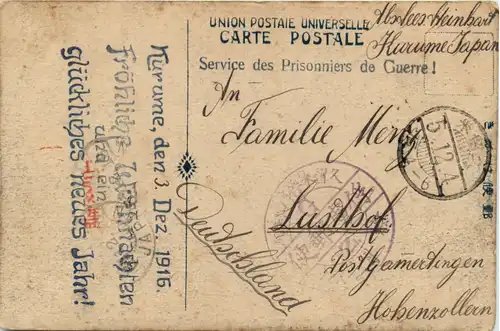 UNION POSTALE UNIVERSELLE
CARTE POSTALE
Service des Prisonniers de Guerre!
Kurume Japan
Kurume, den 3. Dez. 1916.
Fröhliche Weihnachten
und ein
glückliches neues Jahr!
An
Familie
Lusthof
Post Gamertingen
Hohenzollern
Deutschland
5.12.4
JAPAN